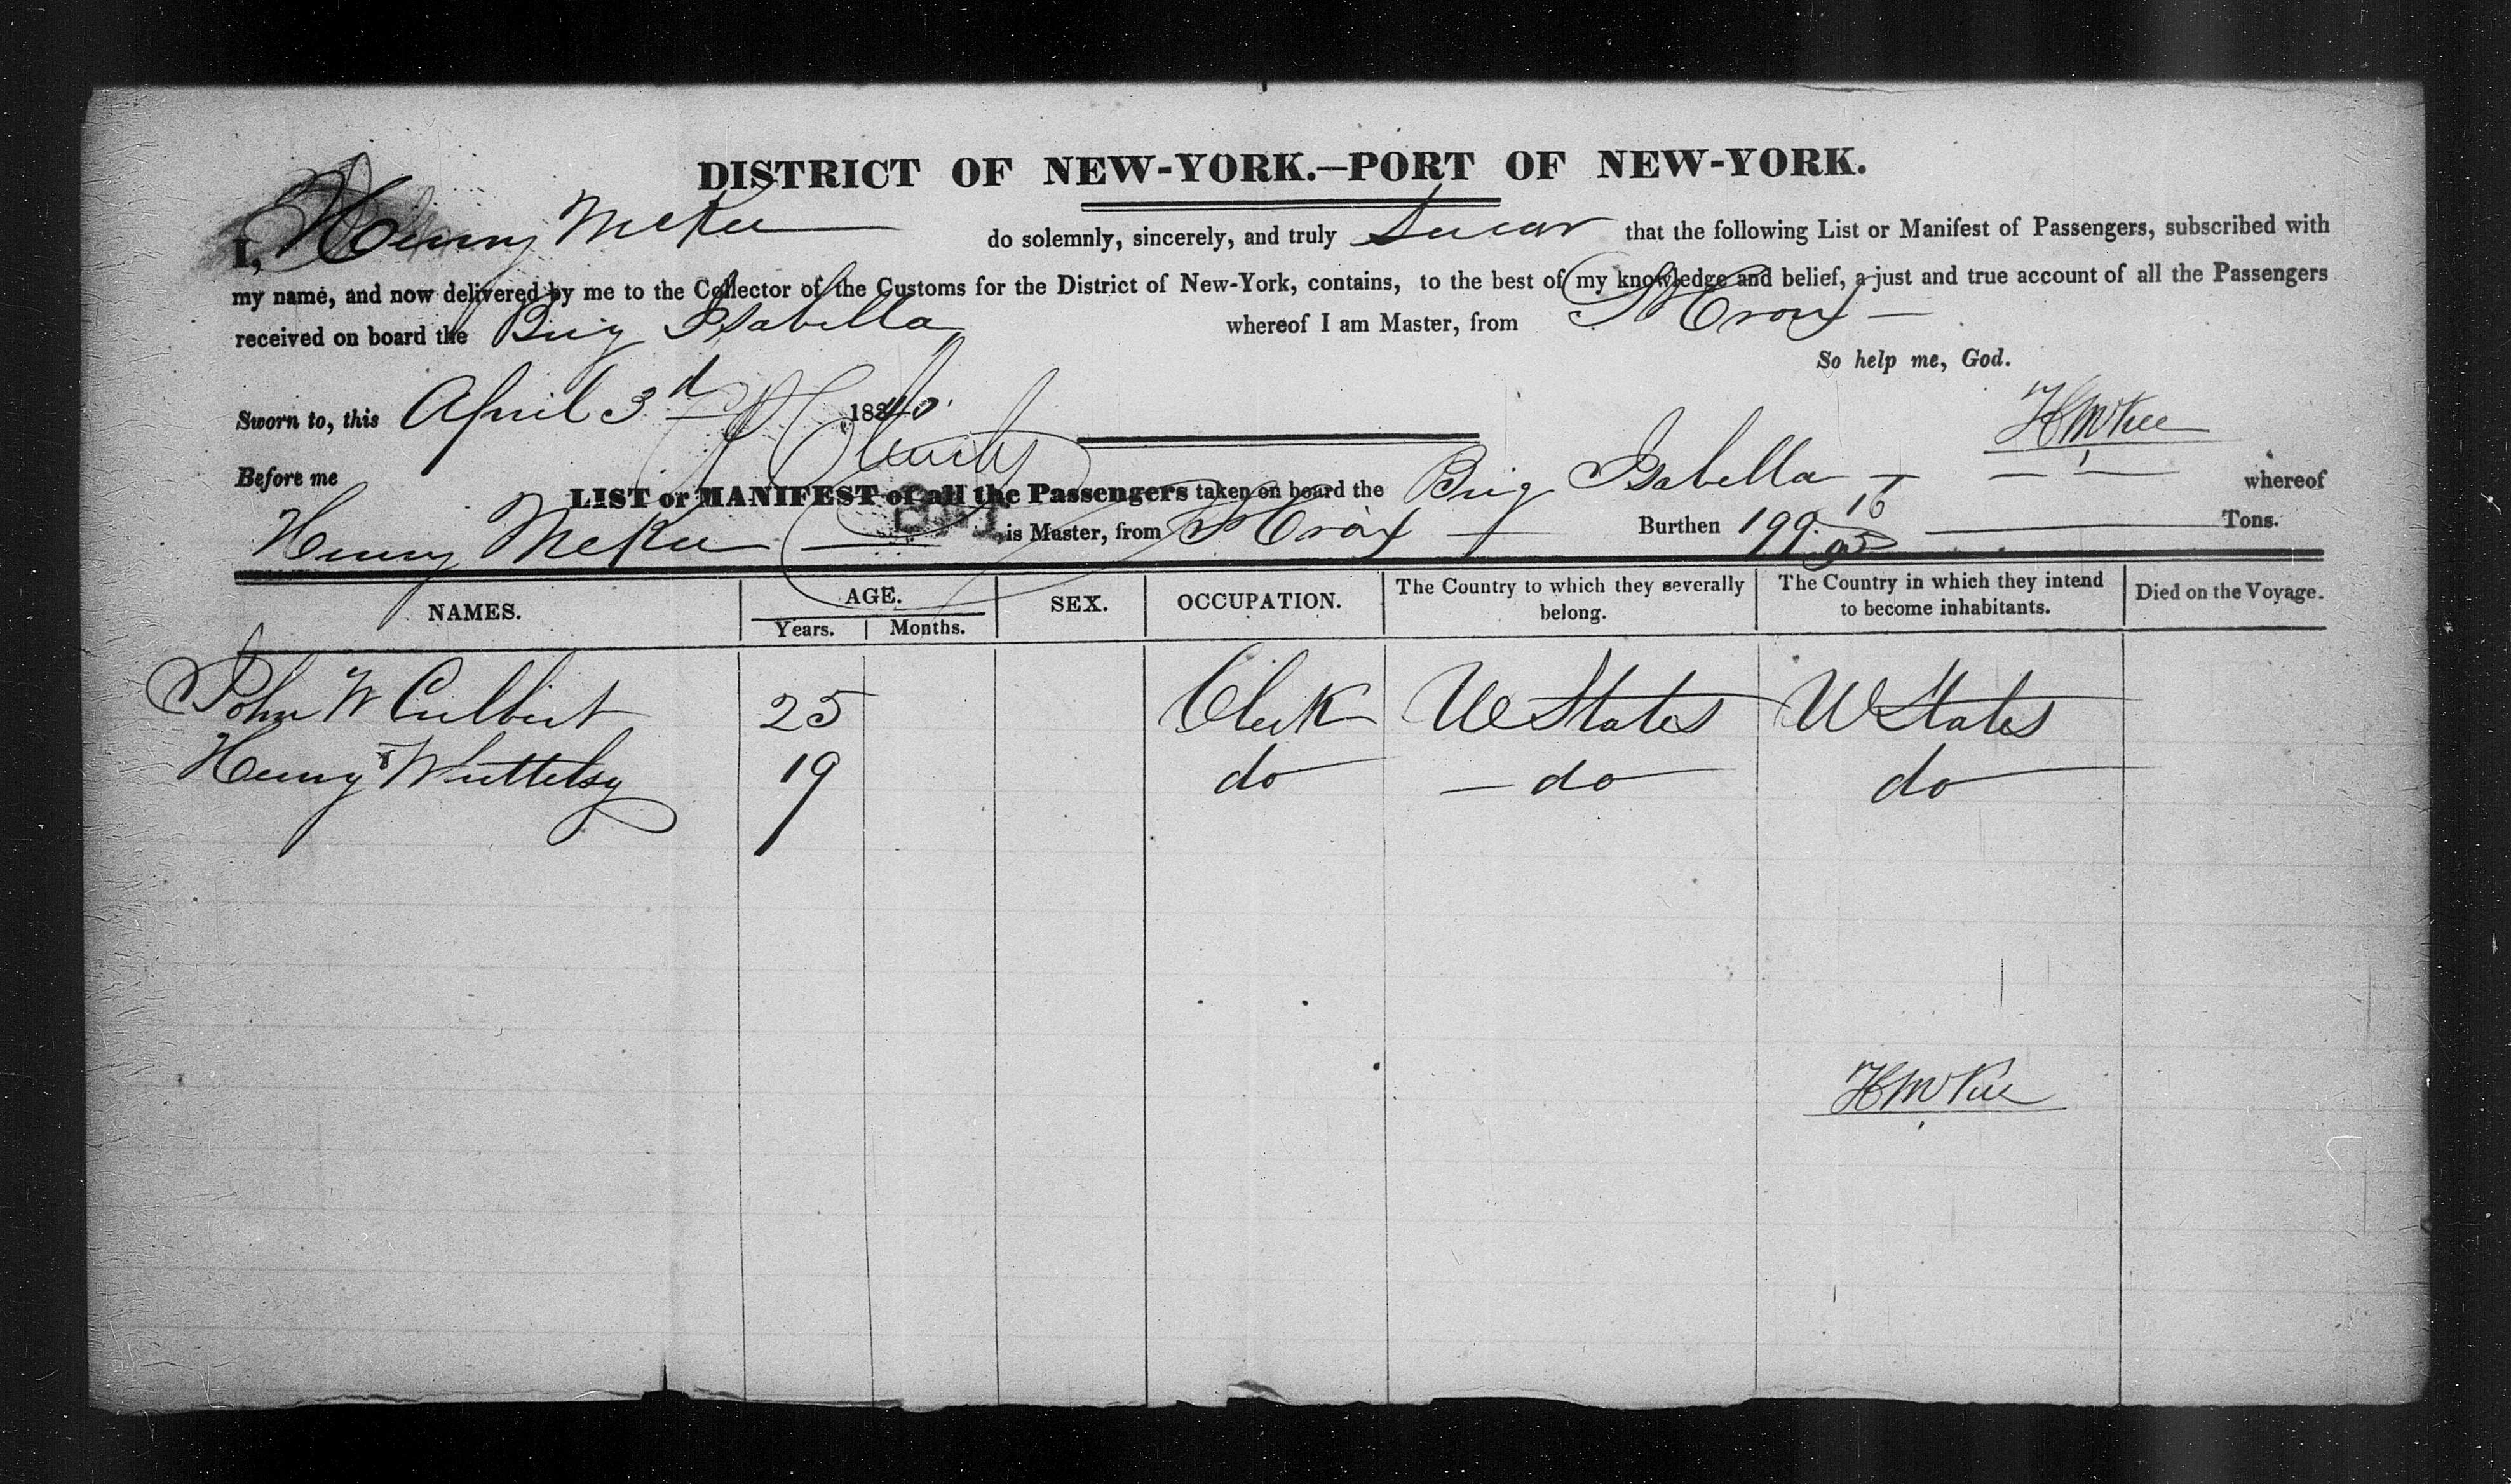 DISTRICT OF NEW-YORK.—PORT OF NEW-YORK.
I, Henry McKee do solemnly, sincerely, and truly Swear that the following List or Manifest of Passengers, subscribed with
my name, and now delivered by me to the Collector of the Customs for the District of New-York, contains, to the best of my knowledge and belief, a just and true account of all the Passengers
received on board the Brig Isabella whereof I am Master, from St Croix
So help me, God.
Sworn to, this April 3d 1840
H McKee
Before me
LIST or MANIFEST of all the Passengers taken on board the Brig Isabella whereof
Henry McKee is Master, from St Croix Burthen 199 16/95 Tons.
NAMES. AGE. SEX. OCCUPATION. The Country to which they severally belong. The Country in which they intend to become inhabitants. Died on the Voyage.
Years. Months.
John W Culbert 25 Clerk U States U States
Henry Whittelsy 19 do do do
H McKee